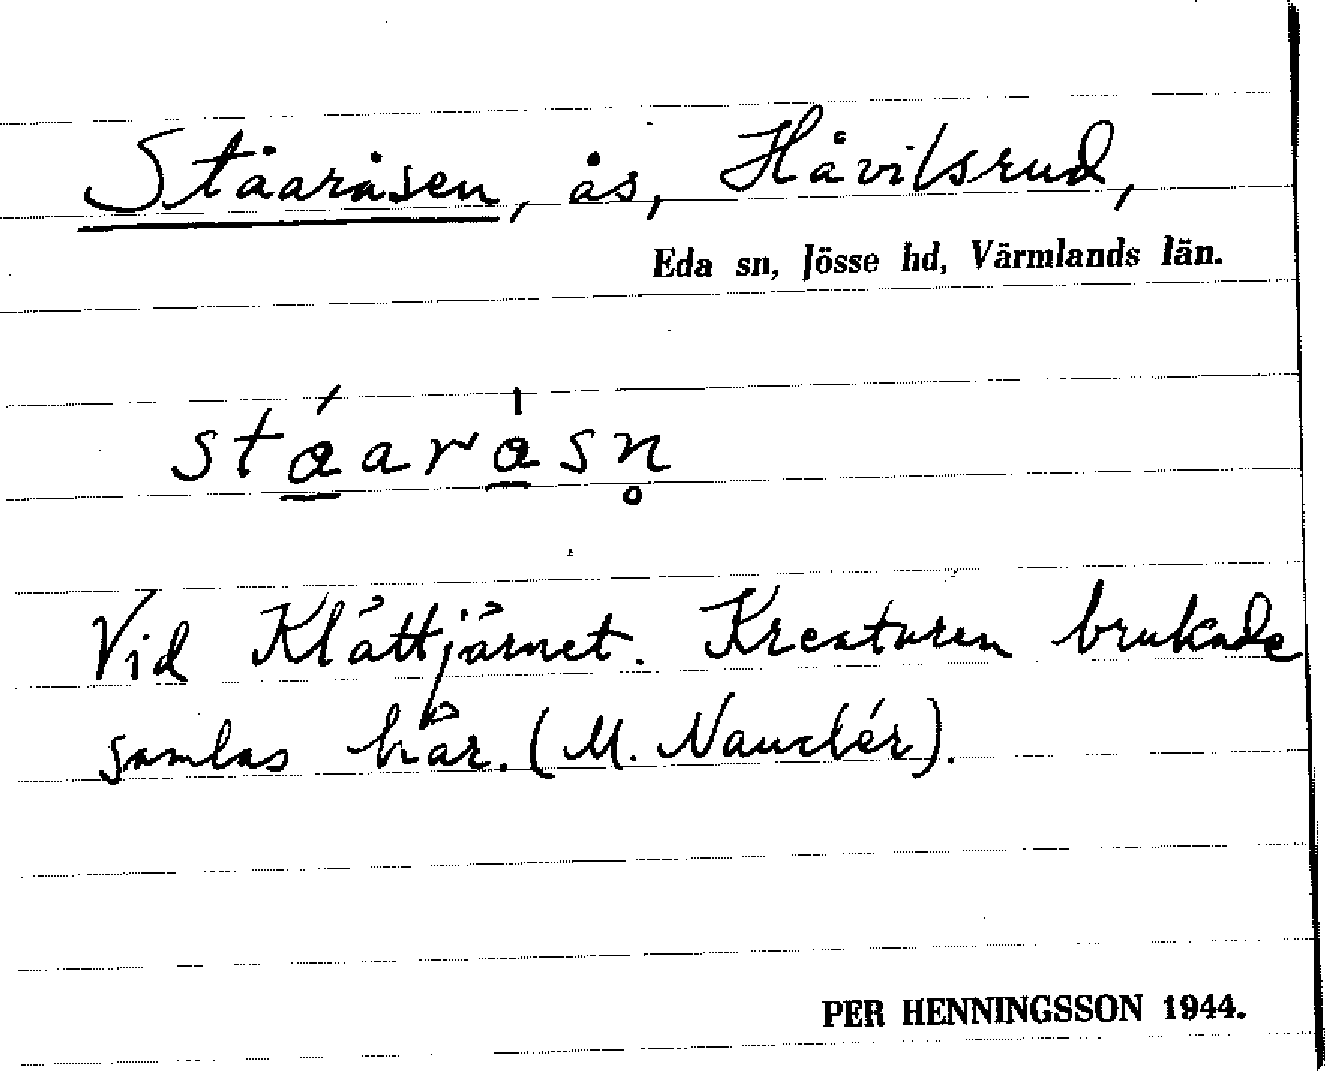 Ståaråsen, ås, Håvilsrud,
Eda sn, Jösse hd, Värmlands län.
stá̱ara̱̍sn̥
Vid Klättjärnet. Kreaturen brukade
samlas här. (M. Nauclér).
PER HENNINGSSON 1944.